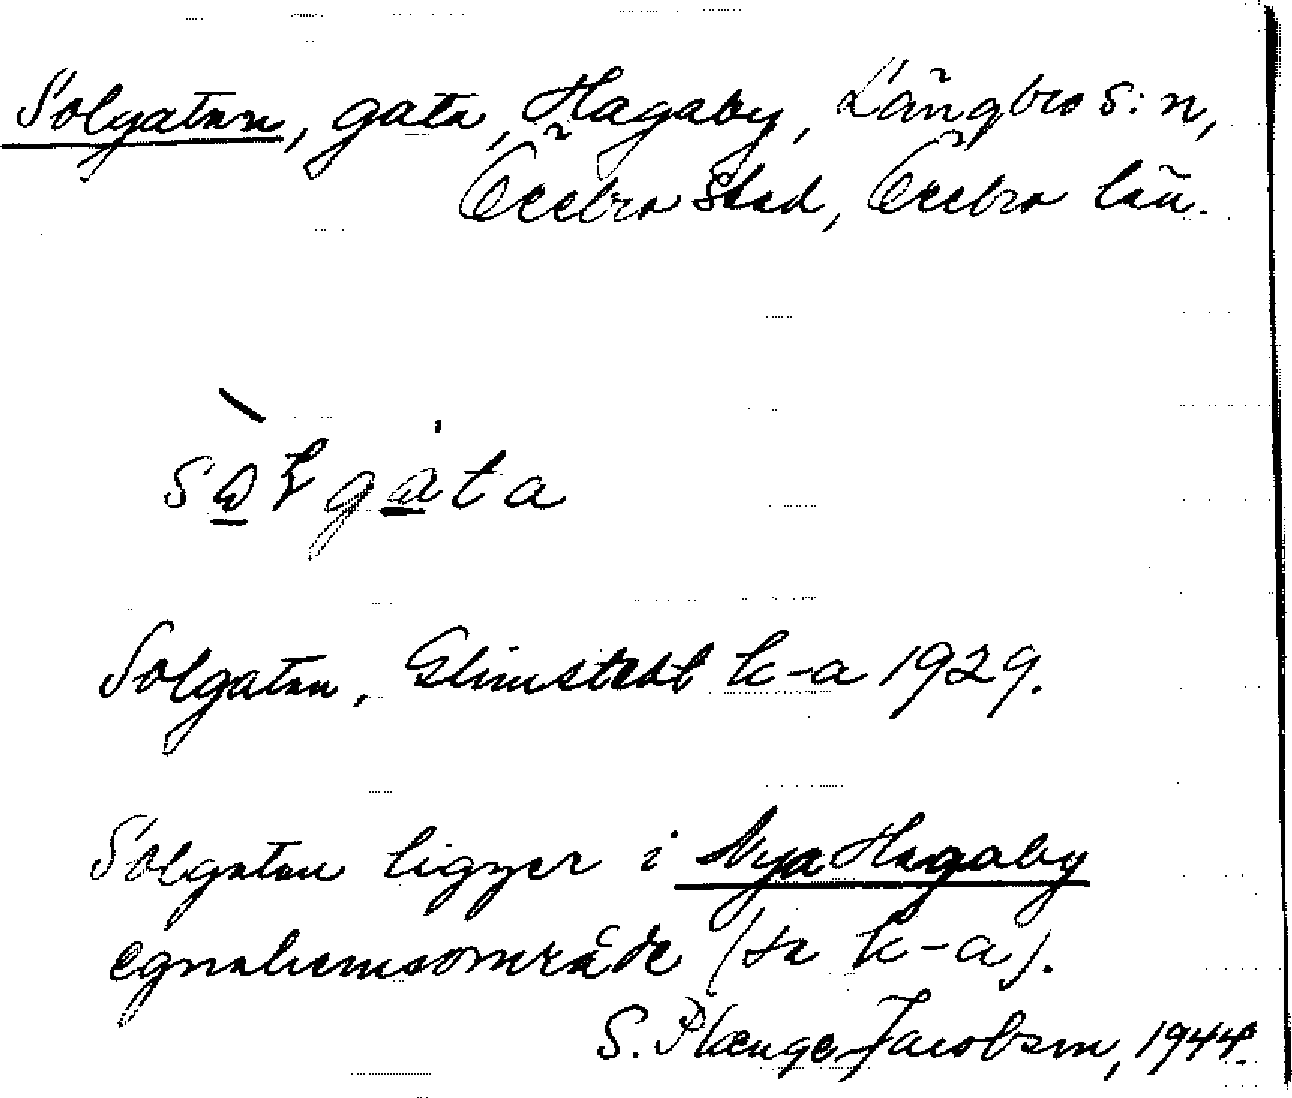 Solgatan, gata, Hagaby, Längbro s:n,
Örebro stad, Örebro län.
sòlgata
Solgatan, Glimstedt k-a 1929.
Solgatan ligger i Nya Hagaby
egnahemsområde (se k-a).
S. Plænge Jacobson, 1944.